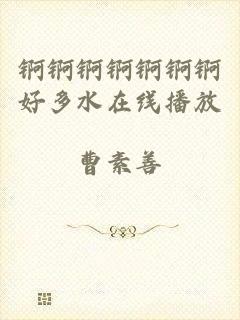 锕锕锕锕锕锕锕
好多水在线播放
曹素善